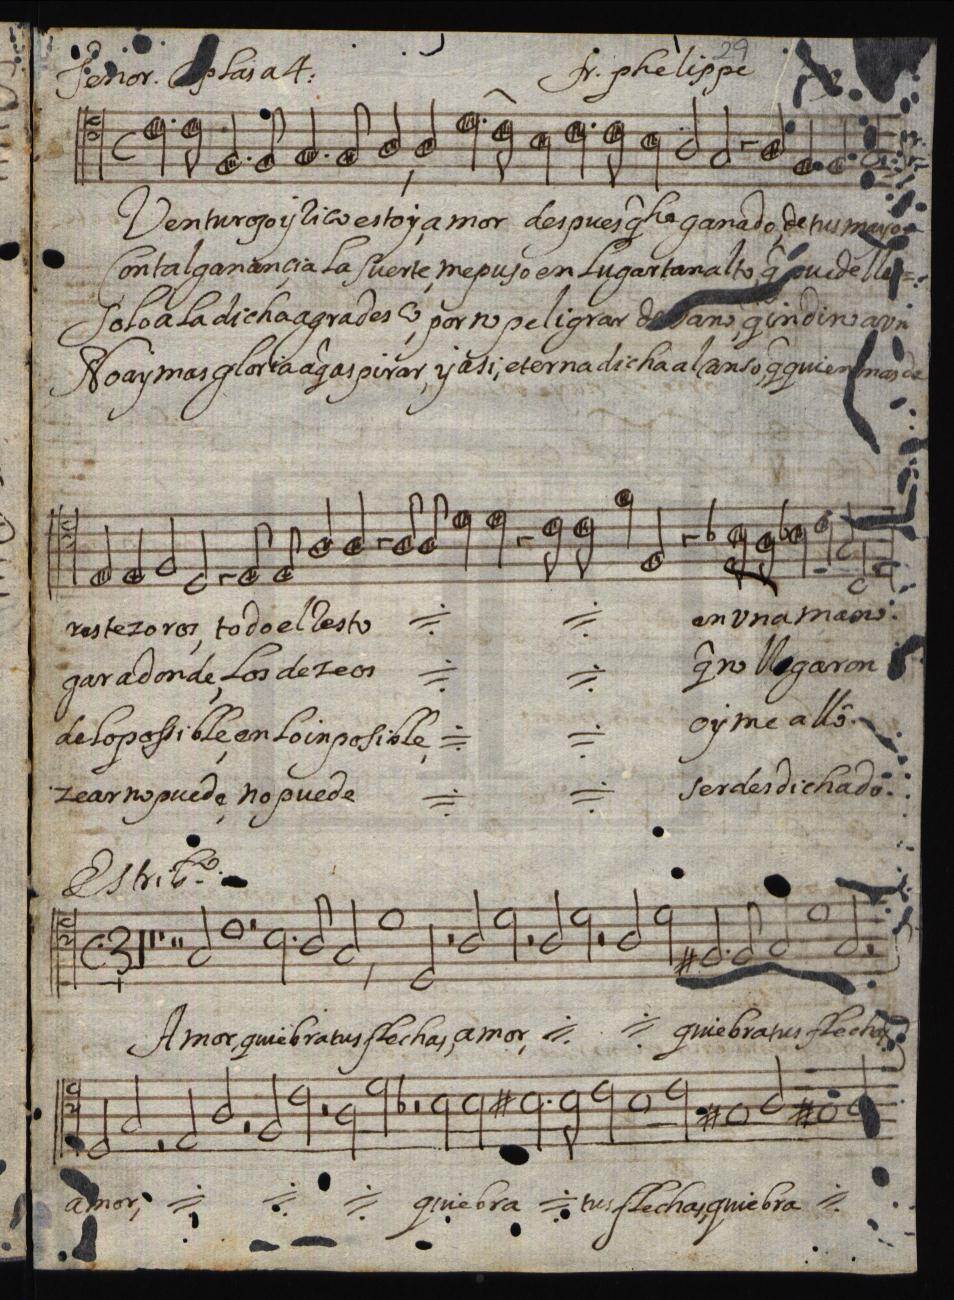 29
Tenor. Coplas a 4: fr. phelippe
Venturozo y rico estoy amor despues q̃ he ganado, de tus mayo-
Con tal ganançia la suerte, me puso en lugar tan alto, q̃ puede lle=
Solo a la dicha agradesco, por no peligrar de vano, q̃ indino aun
No ay mas gloria a q̃ aspirar, y asi, eterna dicha alcanso, q̃ quien mas de
res tezoros, todo el resto en una mano.
gar adonde, los dezeos q̃ no llegaron
de lo possible, en lo inposible, oy me allo.
zear no puede, no puede ser desdichado.
Estribo.
Amor, quiebra tus flechas, amor, quiebra tus flechas
amor, quiebra tus flechas, quiebra